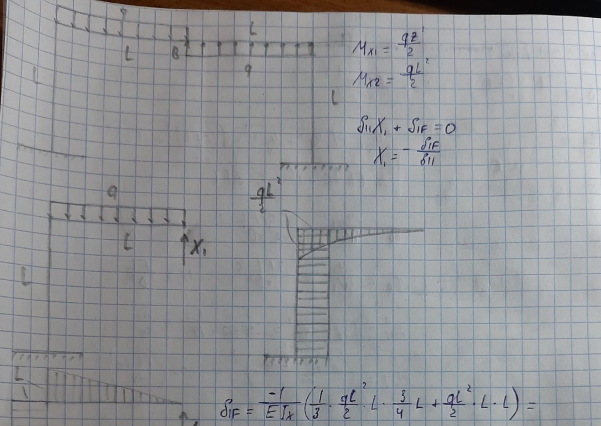 q
L
L
B
q
L
L
Mx1 = qz²/2
Mx2 = qL²/2
δ11X1 + δ1F = 0
X1 = - δ1F/δ11
q
L
X1
L
qL²/2
L
δ1F = -1/EJx (1/3 · qL²/2 · L · 3/4 L + qL²/2 · L · L) =